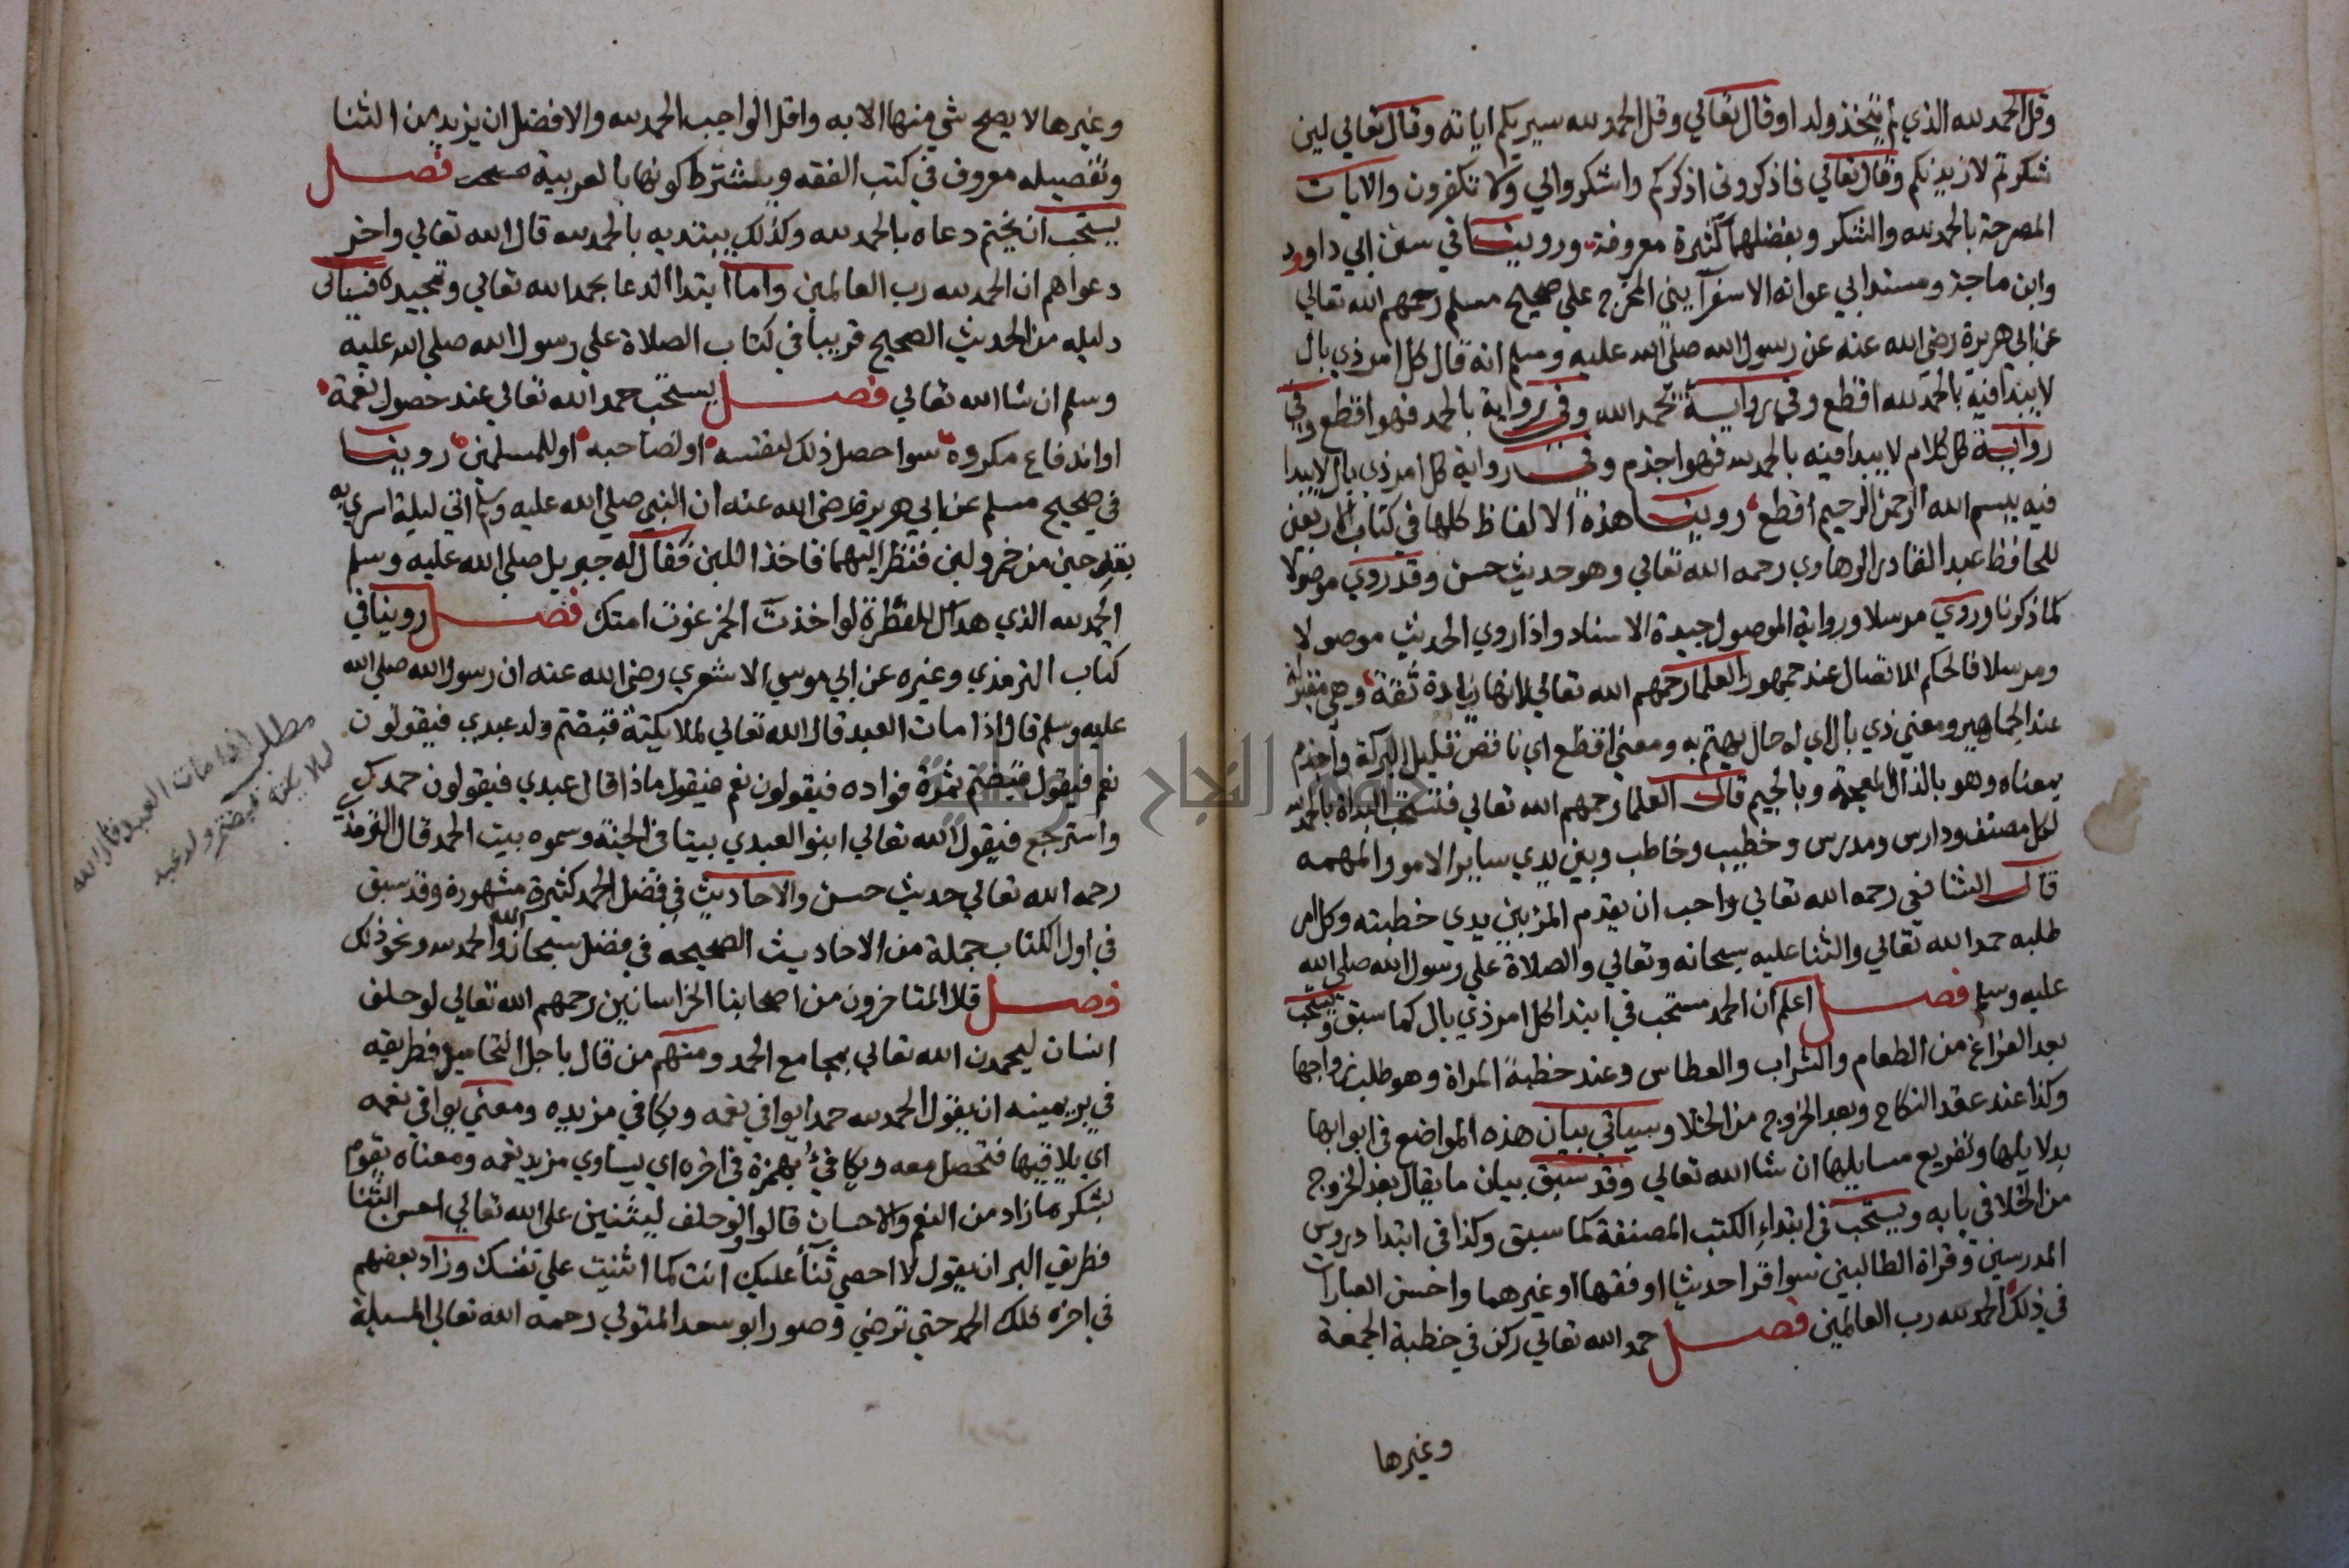 وقل الحمد لله الذي لم يتخذ ولدا وقال تعالي وقل الحمد لله سيريكم اياته وقال تعالي لين
شكرتم لازيدنكم وقال تعالي فاذكروني اذكركم واشكروالي ولا تكفرون والايات
المصرحة بالحمد لله والشكر وبفضلهما كثيرة معروفة وروينا في سنن ابي داوود
وابن ماجة ومسند ابي عوانه الاسفرآييني المخرج علي صحيح مسلم رحمهم الله تعالي
عن ابي هريرة رضي الله عنه عن رسول الله صلي الله عليه وسلم انه قال كل امر ذي بال
لا يبدا فيه بالحمد لله اقطع وفي رواية بحمد الله وفي رواية بالحمد فهو اقطع وفي
رواية كل كلام لا يبدا فيه بالحمد لله فهو اجذم وفي رواية كل امر ذي بال لا يبدا
فيه ببسم الله الرحمن الرحيم اقطع روينا هذه الالفاظ كلها في كتاب الاربعين
للحافظ عبد القادر الرهاوي رحمه الله تعالي وهو حديث حسن وقد روي موصولا
كما ذكرنا وروي مرسلا ورواية الموصول جيدة الاسناد واذا روي الحديث موصولا
ومرسلا فالحكم للاتصال عند جمهور العلما رحمهم الله تعالي لانها زيادة ثقة وهي مقبولة
عند الجماهير ومعني ذي بال اي له حال يهتم به ومعني اقطع اي ناقص قليل البركة واجذم
بمعناه وهو بالذال المعجمة وبالجيم قال العلما رحمهم الله تعالي فتستحب البداة بالحمد لله
لكل مصنف ودارس ومدرس وخطيب وخاطب وبين يدي ساير الامور المهمه
قال الشافعي رحمه الله تعالي واحب ان يقدم المر بين يدي خطبته وكل امر
طلبه حمد الله تعالي والثنا عليه سبحانه وتعالي والصلاة علي رسول الله صلي الله
عليه وسلم فصل اعلم ان الحمد مستحب في ابتدا كل امر ذي بال كما سبق ويستحب
بعد الفراغ من الطعام والشراب والعطاس وعند خطبة المراة وهو طلب زواجها
وكذا عند عقد النكاح وبعد الخروج من الخلا وسياتي بيان هذه المواضع في ابوابها
بدلايلها وتفريع مسايلها ان شا الله تعالي وقد سبق بيان ما يقال بعد الخروج
من الخلا في بابه ويستحب في ابتداء الكتب المصنفة كما سبق وكذا في ابتدا دروس
المدرسين وقراة الطالبين سوا قرا حديثا او فقها او غيرهما واحسن العبارات
في ذلك الحمد لله رب العالمين فصل حمد الله تعالي ركن في خطبة الجمعة
وغيرها
وغيرها لا يصح شي منها الا به واقل الواجب الحمد لله والافضل ان يزيد من الثنا
وتفصيله معروف في كتب الفقه ويشترط كونها بالعربية فصل
يستحب ان يختم دعاه بالحمد لله وكذلك يبتديه بالحمد لله قال الله تعالي واخر
دعواهم ان الحمد لله رب العالمين واما ابتدا الدعا بحمد الله تعالي وتمجيده فسياتي
دليله من الحديث الصحيح قريبا في كتاب الصلاة علي رسول الله صلي الله عليه
وسلم ان شا الله تعالي فصل يستحب حمد الله تعالي عند حصول نعمة
او اندفاع مكروه سوا حصل ذلك لنفسه او لصاحبه او للمسلمين روينا
في صحيح مسلم عن ابي هريرة رضي الله عنه ان النبي صلي الله عليه وسلم اتي ليلة اسري به
بقدحين من خمر ولبن فنظر اليهما فاخذ اللبن فقال له جبريل صلي الله عليه وسلم
الحمد لله الذي هداك للفطرة لو اخذت الخمر غوت امتك فصل روينا في
كتاب الترمذي وغيره عن ابي موسي الاشعري رضي الله عنه ان رسول الله صلي الله
عليه وسلم قال اذا مات العبد قال الله تعالي لملايكته قبضتم ولد عبدي فيقولون
نعم فيقول قبضتم ثمرة فواده فيقولون نعم فيقول ماذا قال عبدي فيقولون حمدك
واسترجع فيقول الله تعالي ابنوا لعبدي بيتا في الجنة وسموه بيت الحمد قال الترمذي
رحمه الله تعالي حديث حسن والاحاديث في فضل الحمد كثيرة مشهورة وقد سبق
في اول الكتاب جملة من الاحاديث الصحيحه في فضل سبحان الله والحمد لله ونحو ذلك
فصل قال المتاخرون من اصحابنا الخراسانيين رحمهم الله تعالي لو حلف
انسان ليحمدن الله تعالي بمجامع الحمد ومنهم من قال باجل التحاميد فطريقه
في بر يمينه ان يقول الحمد لله حمدا يوافي نعمه ويكافي مزيده ومعني يوافي نعمه
اي يلاقيها فتحصل معه ويكافئ بهمزة في اخره اي يساوي مزيد نعمه ومعناه يقوم
بشكر ما زاد من النعم والاحسان قالوا ولو حلف ليثنين علي الله تعالي احسن الثنا
فطريق البر ان يقول لا احصي ثنآ عليك انت كما اثنيت علي نفسك وزاد بعضهم
في اخره فلك الحمد حتي ترضي وصور ابو سعد المتولي رحمه الله تعالي المسيلة
مطلب اذا مات العبد قال الله
لملايكته قبضتم ولد عبد